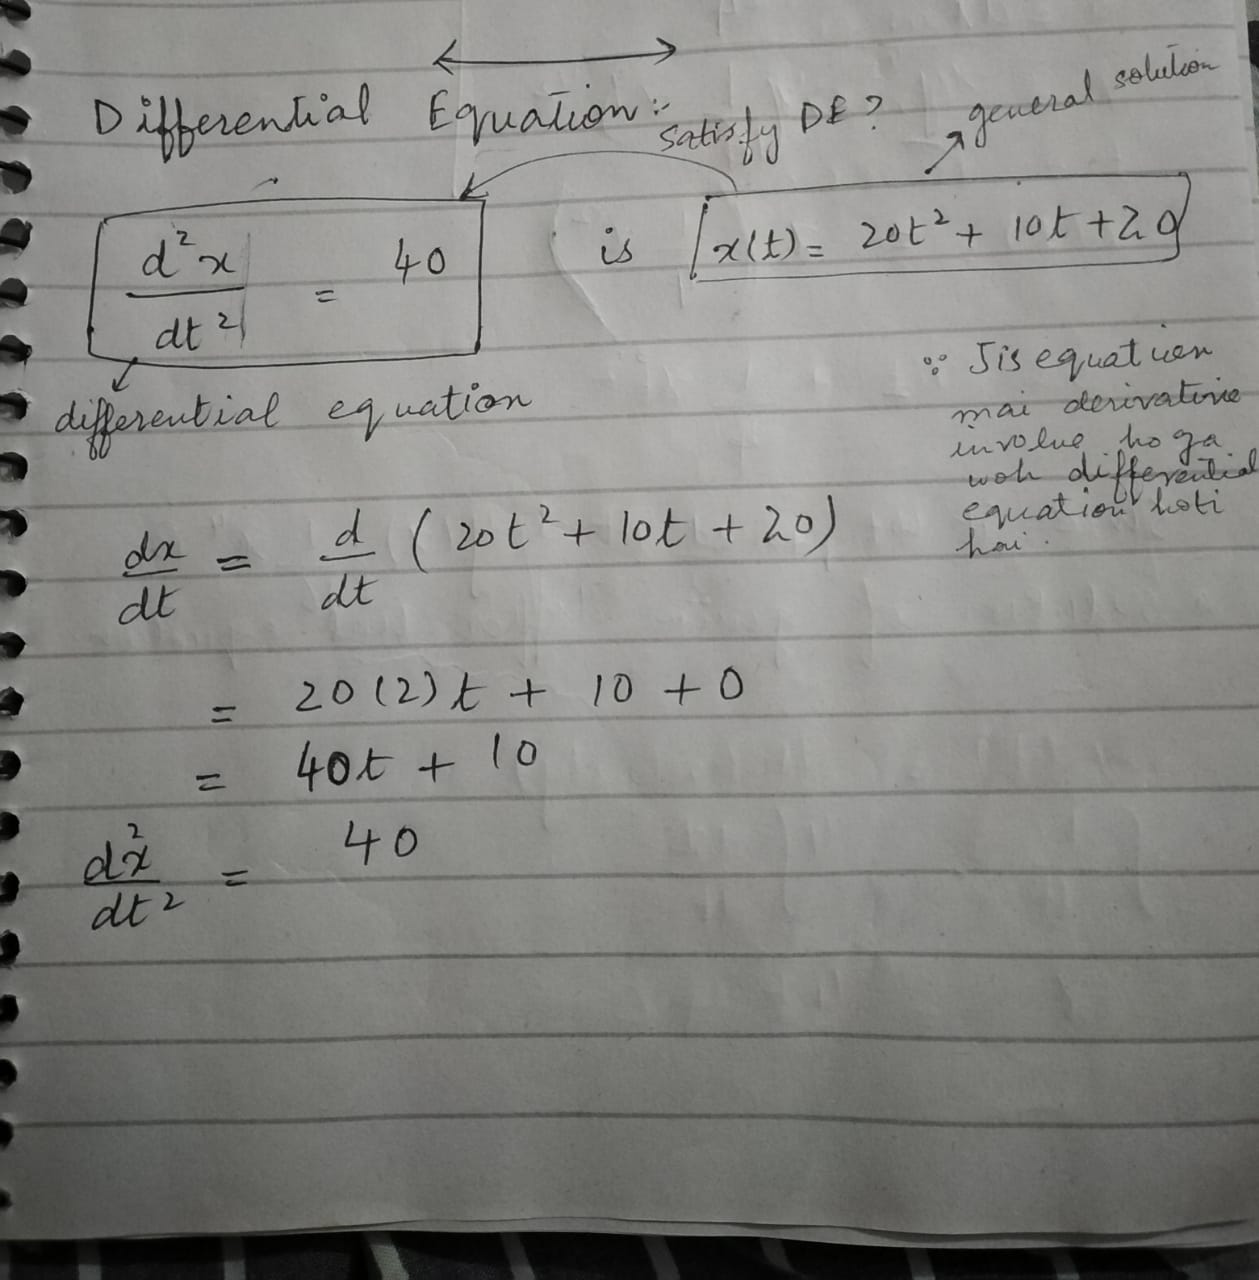 Differential Equation :-
satisfy DE?
general solution
d²x/dt² = 40
is x(t) = 20t² + 10t + 20
differential equation
∵ Jis equation
mai derivative
involve hoga
woh differential
equation hoti
hai.
dx/dt = d/dt (20t² + 10t + 20)
= 20(2)t + 10 + 0
= 40t + 10
d²x/dt² = 40